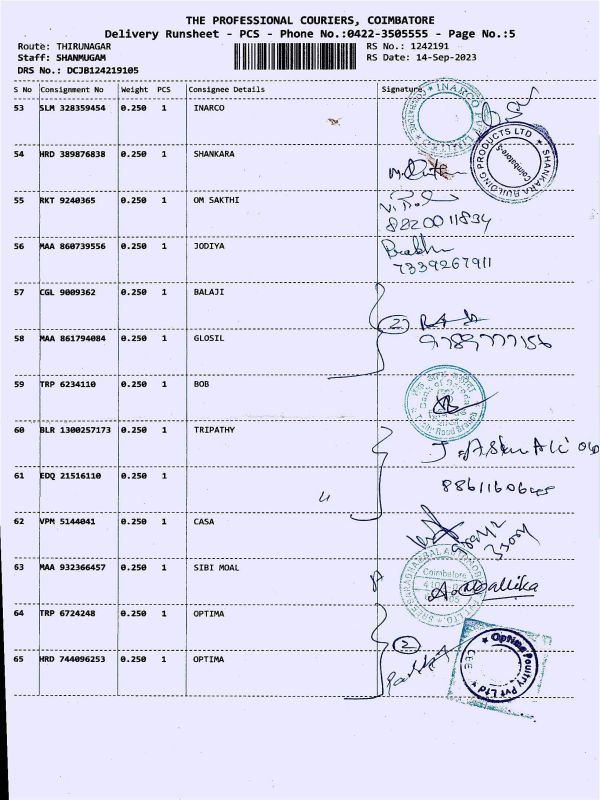 THE PROFESSIONAL COURIERS, COIMBATORE
Delivery Runsheet - PCS - Phone No.:0422-3505555 - Page No.:5
Route: THIRUNAGAR RS No.: 1242191
Staff: SHANMUGAM RS Date: 14-Sep-2023
DRS No.: DCJB124219105
S No Consignment No Weight PCS Consignee Details Signature
53 SLM 328359454 0.250 1 INARCO
INARCO
54 HRD 389876838 0.250 1 SHANKARA
SHANKARA BUILDING PRODUCTS LTD
Coimbatore
55 RKT 9240365 0.250 1 OM SAKTHI
8820011834
56 MAA 860739556 0.250 1 JODIYA
Prabhu
7339267911
57 CGL 9009362 0.250 1 BALAJI
2
58 MAA 861794084 0.250 1 GLOSIL
9789777156
59 TRP 6234110 0.250 1 BOB
Bank of Baroda
60 BLR 1300257173 0.250 1 TRIPATHY
61 EDQ 21516110 0.250 1
62 VPM 5144041 0.250 1 CASA
63 MAA 932366457 0.250 1 SIBI MOAL
Coimbatore
64 TRP 6724248 0.250 1 OPTIMA
2
65 HRD 744096253 0.250 1 OPTIMA
Optima Poultry Pvt Ltd